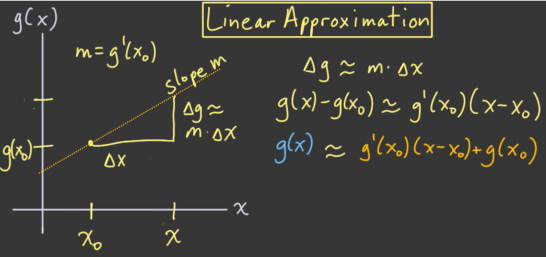 g(x)
Linear Approximation
m = g'(x₀)
slope m
Δg ≈
m·Δx
Δx
g(x₀)
x₀
x
x
Δg ≈ m·Δx
g(x)-g(x₀) ≈ g'(x₀)(x-x₀)
g(x) ≈ g'(x₀)(x-x₀)+g(x₀)